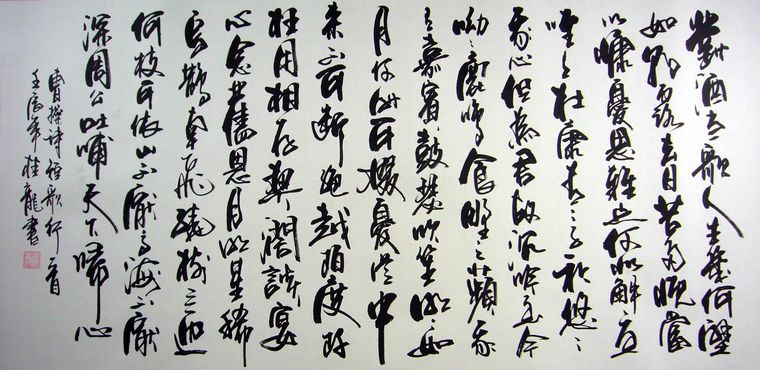 對酒當歌人生幾何譬
如朝露去日苦多慨當
以慷憂思難忘何以解憂
唯有杜康青々子衿悠々
我心但為君故沉吟至今
呦々鹿鳴食野之蘋我
有嘉賓鼓瑟吹笙明々如
月何時可掇憂從中
來不可斷絕越陌度阡
枉用相存契闊談宴
心念舊恩月明星稀
烏鵲南飛繞樹三匝
何枝可依山不厭高海不厭
深周公吐哺天下歸心
曹操詩短歌行一首
壬辰年桂龍書